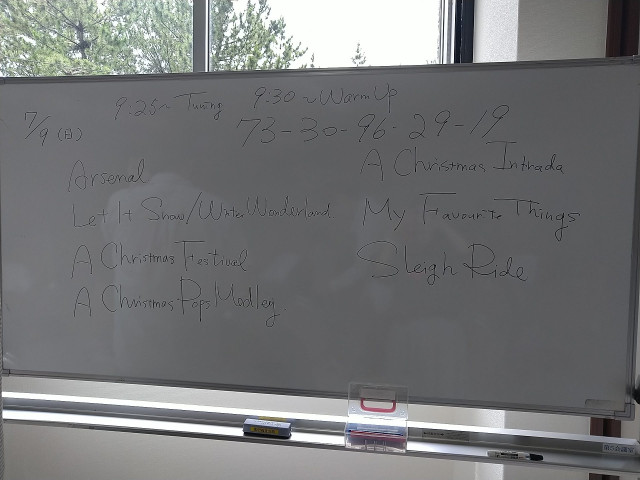 9:25~ Tuning 9:30~ Warm Up
7/9 (日)
73-30-96-29-19
Arsenal
Let It Snow/Winter Wonderland
A Christmas Festival
A Christmas Pops Medley
A Christmas Intrada
My Favourite Things
Sleigh Ride